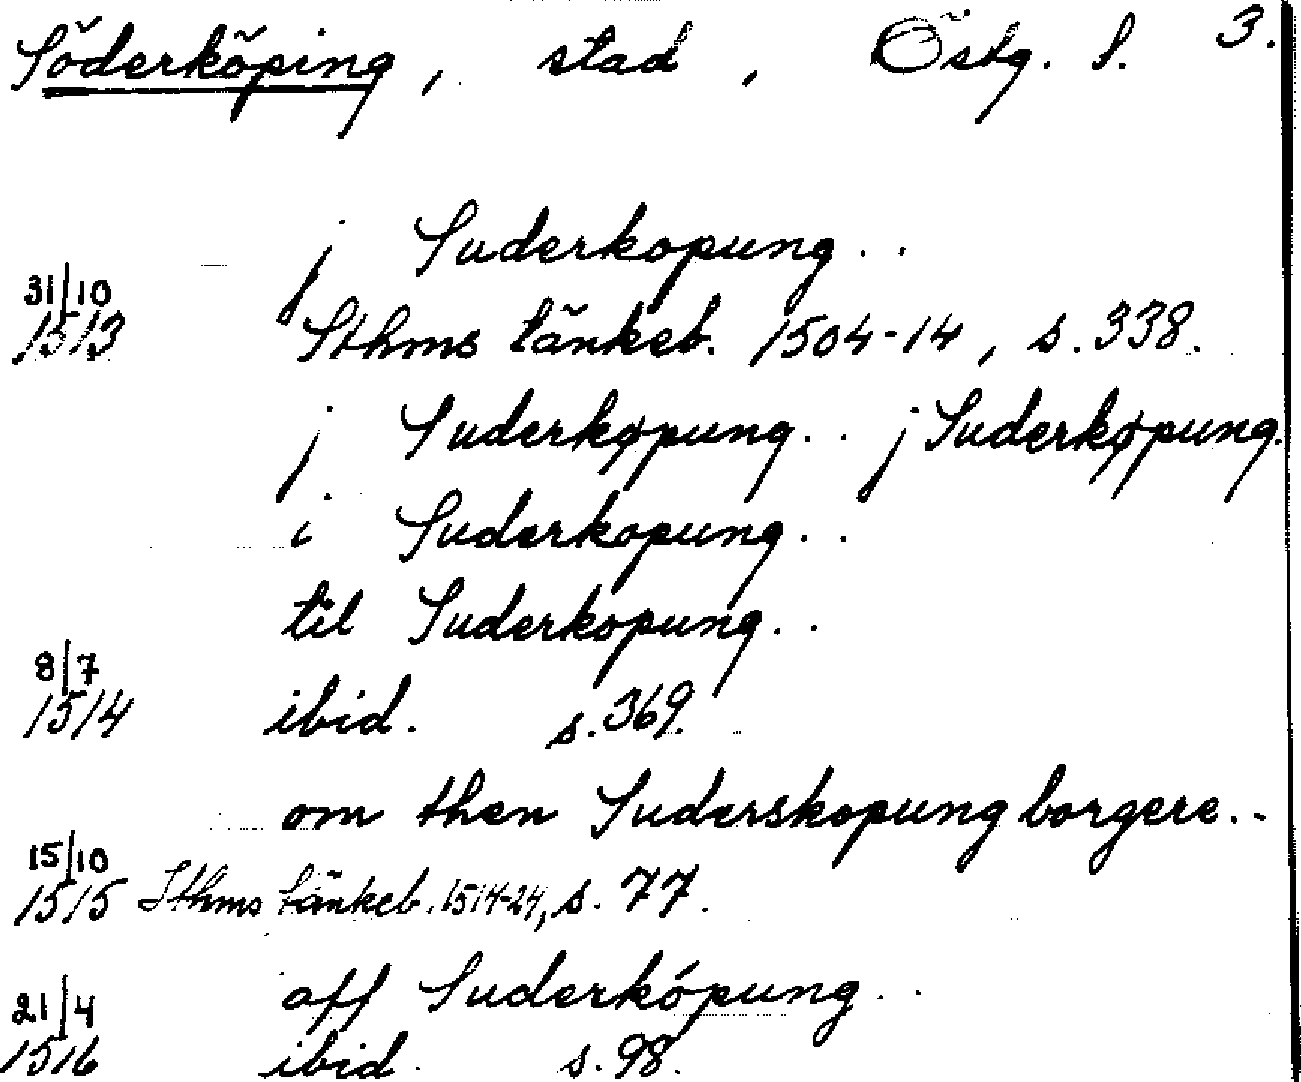 Söderköping, stad, Östg. l. 3.
j Suderkopung..
31/10
1513 Sthms tänkeb. 1504-14, s. 338.
j Suderkøpung.. j Suderkøpung.
i Suderkopung..
til Suderkopung..
8/7
1514 ibid. s. 369.
om then Suderskopung borgere..
15/10
1515 Sthms tänkeb. 1514-24, s. 77.
aff Suderkópung..
21/4
1516 ibid. s. 98.